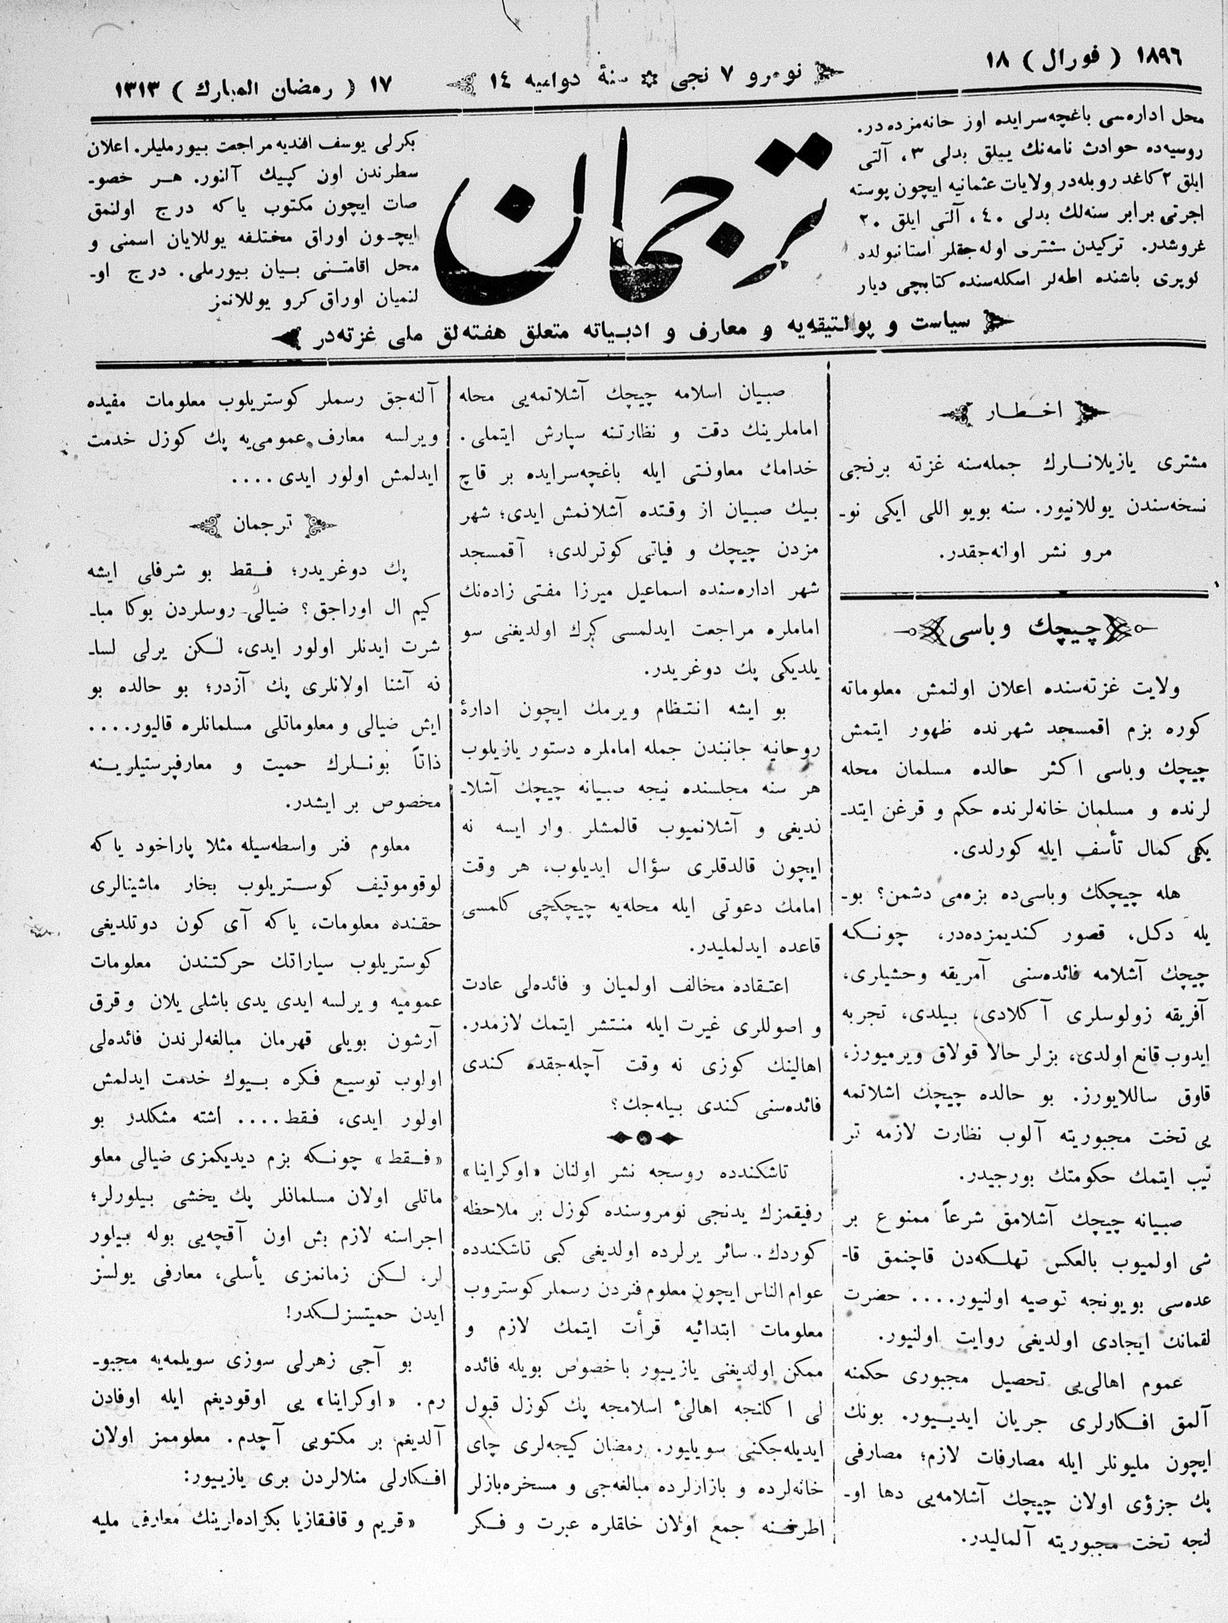 ١٨٩٦ ( فورال ) ١٨
نومرو ٧ نجی ✲ سنهٔ دوامیه ١٤
١٧ ( رمضان المبارك ) ١٣١٣
محل اداره‌سی باغچه‌سرایده اوز خانه‌مزده‌در.
روسیه‌ده حوادث نامه‌نك ییلق بدلی ٣، آلتی
ایلق ٢ كاغد روبله‌در ولایات عثمانیه ایچون پوسته
اجرتی برابر سنه‌لك بدلی ٤٠، آلتی ایلق ٢٠
غروشدر. تركیدن مشتری اوله‌جقلر استانبولده
كوپری باشنده اطه‌لر اسكله‌سنده كتابچی دیار
ترجمان
بكرلی یوسف افندیه مراجعت بیورملیلر. اعلان
سطرندن اون كپیك آلنور. هر خصو-
صات ایچون مكتوب یاكه درج اولنمق
ایچون اوراق مختلفه یوللایان اسمنی و
محل اقامتنی بیان بیورملی. درج او-
لنمیان اوراق كرو یوللانمز
سیاست و پولتیقه‌یه و معارف و ادبیاته متعلق هفته‌لق ملی غزته‌در
اخطار
مشتری یازیلانلرك جمله‌سنه غزته برنجی
نسخه‌سندن یوللانیور. سنه بویو اللی ایكی نو-
مرو نشر اولنه‌جقدر.
چیچك وباسی
ولایت غزته‌سنده اعلان اولنمش معلوماته
كوره بزم اقمسجد شهرنده ظهور ایتمش
چیچك وباسی اكثر حالده مسلمان محله
لرنده و مسلمان خانه‌لرنده حكم و قرغن ایتد-
یكی كمال تأسف ایله كورلدی.
هله چیچكك وباسی‌ده بزه‌می دشمن؟ بو-
یله دكل، قصور كندیمزده‌در، چونكه
چیچك آشلامه فائده‌سنی آمریقه وحشیلری،
آفریقه زولوسلری آكلادی، بیلدی، تجربه
ایدوب قانع اولدی، بزلر حالا قولاق ویرمیورز،
قاوق ساللایورز. بو حالده چیچك اشلاتمه
یی تخت مجبوریته آلوب نظارت لازمه تر
تیب ایتمك حكومتك بورجیدر.
صبیانه چیچك آشلامق شرعاً ممنوع بر
شی اولمیوب بالعكس تهلكه‌دن قاچنمق قا-
عده‌سی بویونجه توصیه اولنیور.... حضرت
لقمانك ایجادی اولدیغی روایت اولنیور.
عموم اهالی‌یی تحصیل مجبوری حكمنه
آلمق افكارلری جریان ایدیور. بونك
ایچون ملیونلر ایله مصارفات لازم؛ مصارفی
پك جزؤی اولان چیچك آشلامه‌یی دها او-
لنجه تخت مجبوریته آلمالیدر.
صبیان اسلامه چیچك آشلاتمه‌یی محله
اماملرینك دقت و نظارتنه سپارش ایتملی.
خدامك معاونتی ایله باغچه‌سرایده بر قاچ
بیك صبیان از وقتده آشلانمش ایدی؛ شهر
مزدن چیچك و فیاتی كوترلدی؛ آقمسجد
شهر اداره‌سنده اسماعیل میرزا مفتی زاده‌نك
اماملره مراجعت ایدلمسی كرك اولدیغنی سو
یلدیكی پك دوغریدر.
بو ایشه انتظام ویرمك ایچون ادارهٔ
روحانیه جانبندن جمله اماملره دستور یازیلوب
هر سنه مجلسنده نیجه صبیانه چیچك آشلا-
ندیغی و آشلانمیوب قالمشلر وار ایسه نه
ایچون قالدقلری سؤال ایدیلوب، هر وقت
امامك دعوتی ایله محله‌یه چیچكچی كلمسی
قاعده ایدلملیدر.
اعتقاده مخالف اولمیان و فائده‌لی عادت
و اصوللری غیرت ایله منتشر ایتمك لازمدر.
اهالینك كوزی نه وقت آچله‌جقده كندی
فائده‌سنی كندی بیله‌جك؟
تاشكندده روسجه نشر اولنان «اوكراینا»
رفیقمزك یدنجی نومروسنده كوزل بر ملاحظه
كوردك. سائر یرلرده اولدیغی كبی تاشكندده
عوام الناس ایچون معلوم فنردن رسملر كوستروب
معلومات ابتدائیه قرأت ایتمك لازم و
ممكن اولدیغنی یازییور باخصوص بویله فائده
لی اكلنجه اهالیٔ اسلامجه پك كوزل قبول
ایدیله‌جكنی سویلیور. رمضان كیجه‌لری چای
خانه‌لرده و بازارلرده مبالغه‌جی و مسخره‌بازلر
اطرفنه جمع اولان خلقلره عبرت و فكر
آلنه‌جق رسملر كوستریلوب معلومات مفیده
ویرلسه معارف عمومی‌یه پك كوزل خدمت
ایدلمش اولور ایدی....
ترجمان
پك دوغریدر؛ فقط بو شرفلی ایشه
كیم ال اوراجق؟ ضیالی روسلردن بوكا مبا-
شرت ایدنلر اولور ایدی، لكن یرلی لسا-
نه آشنا اولانلری پك آزدر؛ بو حالده بو
ایش ضیالی و معلوماتلی مسلمانلره قالیور....
ذاتاً بونلرك حمیت و معارفپرستیلرینه
مخصوص بر ایشدر.
معلوم فنر واسطه‌سیله مثلا پاراخود یاكه
لوقوموتیف كوستریلوب بخار ماشینالری
حقنده معلومات، یاكه آی كون دوتلدیغی
كوستریلوب سیاراتك حركتندن معلومات
عمومیه ویرلسه ایدی یدی باشلی یلان وقرق
آرشون بویلی قهرمان مبالغه‌لرندن فائده‌لی
اولوب توسیع فكره بیوك خدمت ایدلمش
اولور ایدی، فقط.... اشته مشكلدر بو
«فقط» چونكه بزم دیدیكمزی ضیالی معلو
ماتلی اولان مسلمانلر پك یخشی بیلورلر؛
اجراسنه لازم بش اون آقچه‌یی بوله بیلور
لر. لكن زمانمزی یأسلی، معارفی یولسز
ایدن حمیتسزلكدر!
بو آجی زهرلی سوزی سویلمه‌یه مجبو-
رم. «اوكراینا» یی اوقودیغم ایله اوفادن
آلدیغم بر مكتوبی آچدم. معلوممز اولان
افكارلی منلالردن بری یازییور:
«قریم و قافقازیا بكزاده‌لرینك معارف ملیه